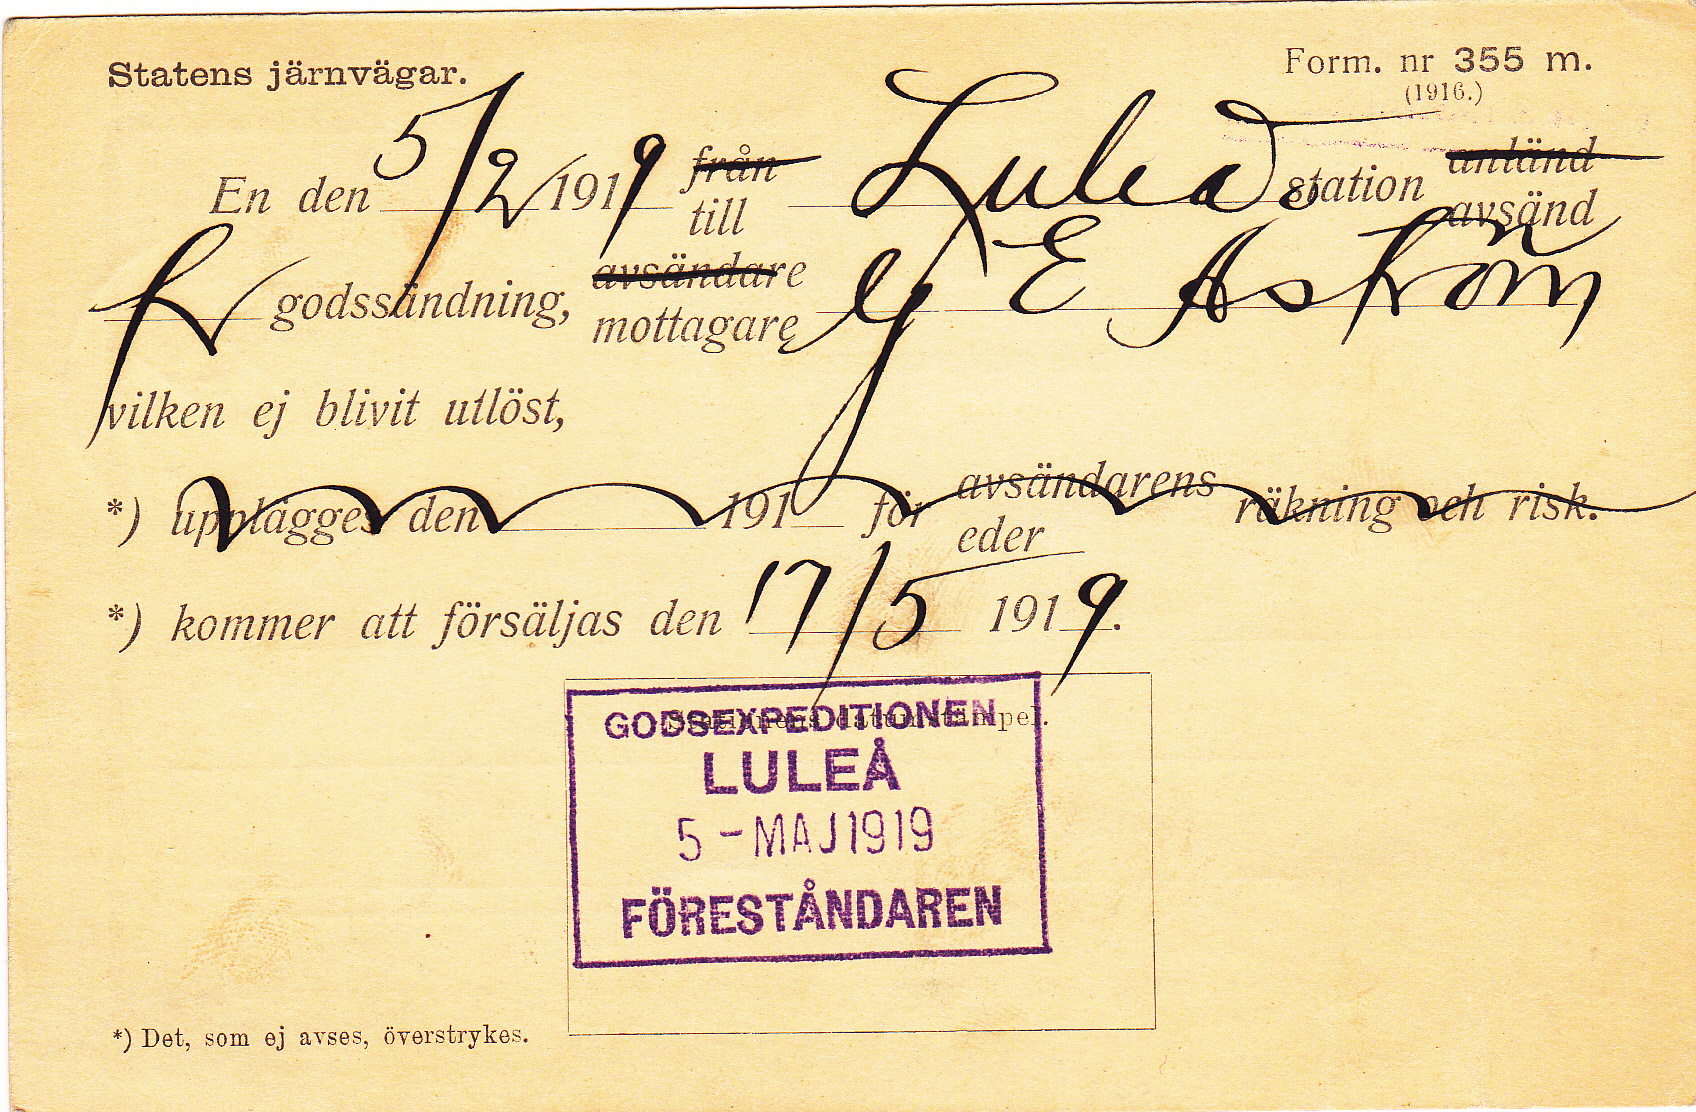 Statens järnvägar.
Form. nr 355 m.
(1916.)
En den 5/2 1919 från till Luleå station anländ avsänd
godssändning, avsändare mottagare G E Aström
vilken ej blivit utlöst,
*) upplägges den 191 för avsändarens eder räkning och risk.
*) kommer att försäljas den 17/5 1919.
Stationens datumstämpel.
GODSEXPEDITIONEN
LULEÅ
5 - MAJ 1919
FÖRESTÅNDAREN
*) Det, som ej avses, överstrykes.